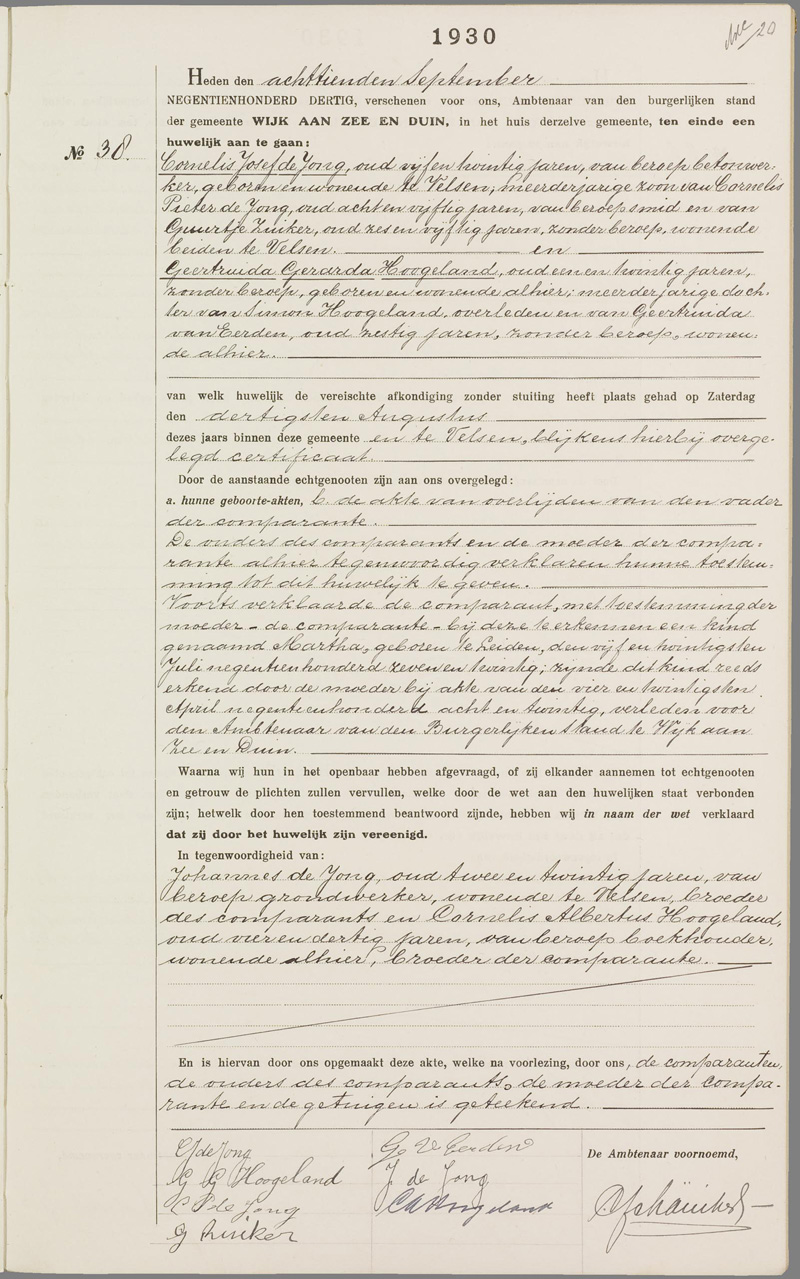 1930
20
Heden den achttienden September
NEGENTIENHONDERD DERTIG, verschenen voor ons, Ambtenaar van den burgerlijken stand
der gemeente WIJK AAN ZEE EN DUIN, in het huis derzelve gemeente, ten einde een
№ 38.
huwelijk aan te gaan:
Cornelis Josef de Jong, oud vijf en twintig jaren, van beroep betonwer-
ker, geboren en wonende te Velsen, meerderjarige zoon van Cornelis
Pieter de Jong, oud acht en vijftig jaren, van beroep smid en van
Guurtje Zuiker, oud zes en vijftig jaren, zonder beroep, wonende
beiden te Velsen. en
Geertruida Gerarda Hoogeland, oud een en twintig jaren,
zonder beroep, geboren en wonende alhier; meerderjarige doch-
ter van Simon Hoogeland, overleden en van Geertruida
van Eerden, oud zestig jaren, zonder beroep, wonen-
de alhier.
van welk huwelijk de vereischte afkondiging zonder stuiting heeft plaats gehad op Zaterdag
den dertigsten Augustus
dezes jaars binnen deze gemeente en te Velsen, blijkens hierbij overge-
legd certificaat.
Door de aanstaande echtgenooten zijn aan ons overgelegd:
a. hunne geboorte-akten, b. de akte van overlijden van den vader
der comparante.
De ouders des comparants en de moeder der compa-
rante alhier tegenwoordig verklaren hunne toestem-
ming tot dit huwelijk te geven.
Voorts verklaarde de comparant, met toestemming der
moeder - de comparante - bij deze te erkennen een kind
genaamd Martha, geboren te Leiden, den vijf en twintigsten
Juli negentienhonderd zeven en twintig; zijnde dit kind reeds
erkend door de moeder bij akte van den vier en twintigsten
April negentienhonderd acht en twintig, verleden voor
den Ambtenaar van den Burgerlijken stand te Wijk aan
Zee en Duin.
Waarna wij hun in het openbaar hebben afgevraagd, of zij elkander aannemen tot echtgenooten
en getrouw de plichten zullen vervullen, welke door de wet aan den huwelijken staat verbonden
zijn; hetwelk door hen toestemmend beantwoord zijnde, hebben wij in naam der wet verklaard
dat zij door het huwelijk zijn vereenigd.
In tegenwoordigheid van:
Johannes de Jong, oud twee en twintig jaren, van
beroep grondwerker, wonende te Velsen, broeder
des comparants en Cornelis Albertus Hoogeland,
oud vier en dertig jaren, van beroep boekhouder,
wonende alhier, broeder der comparante.
En is hiervan door ons opgemaakt deze akte, welke na voorlezing, door ons, de comparanten,
de ouders des comparants, de moeder der compa-
rante en de getuigen is geteekend.
CJ de Jong
G G Hoogeland
C P de Jong
G Zuiker
G. v Eerden
J de Jong
CA Hoogeland
De Ambtenaar voornoemd,